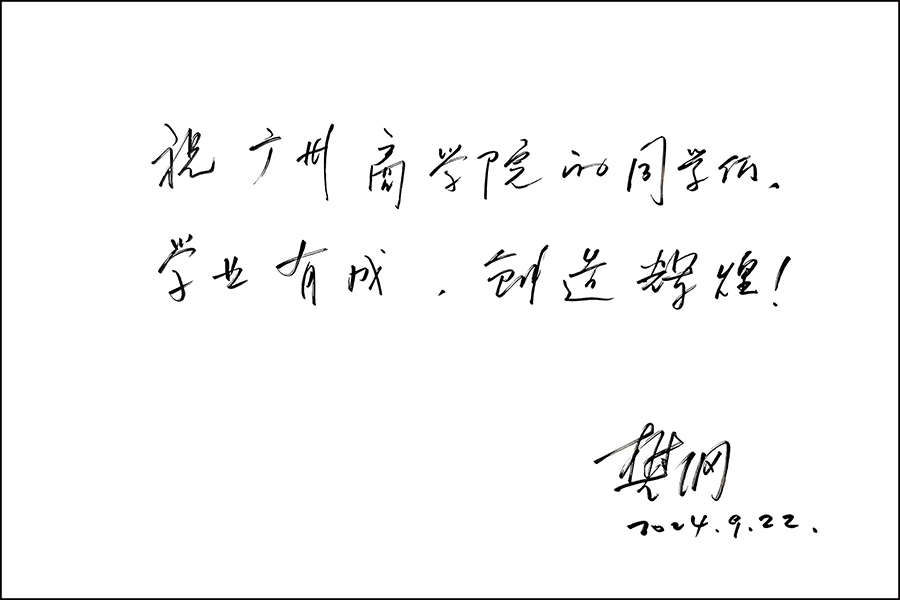 祝广州商学院的同学们、
学业有成、创造辉煌!
樊纲
2024.9.22.